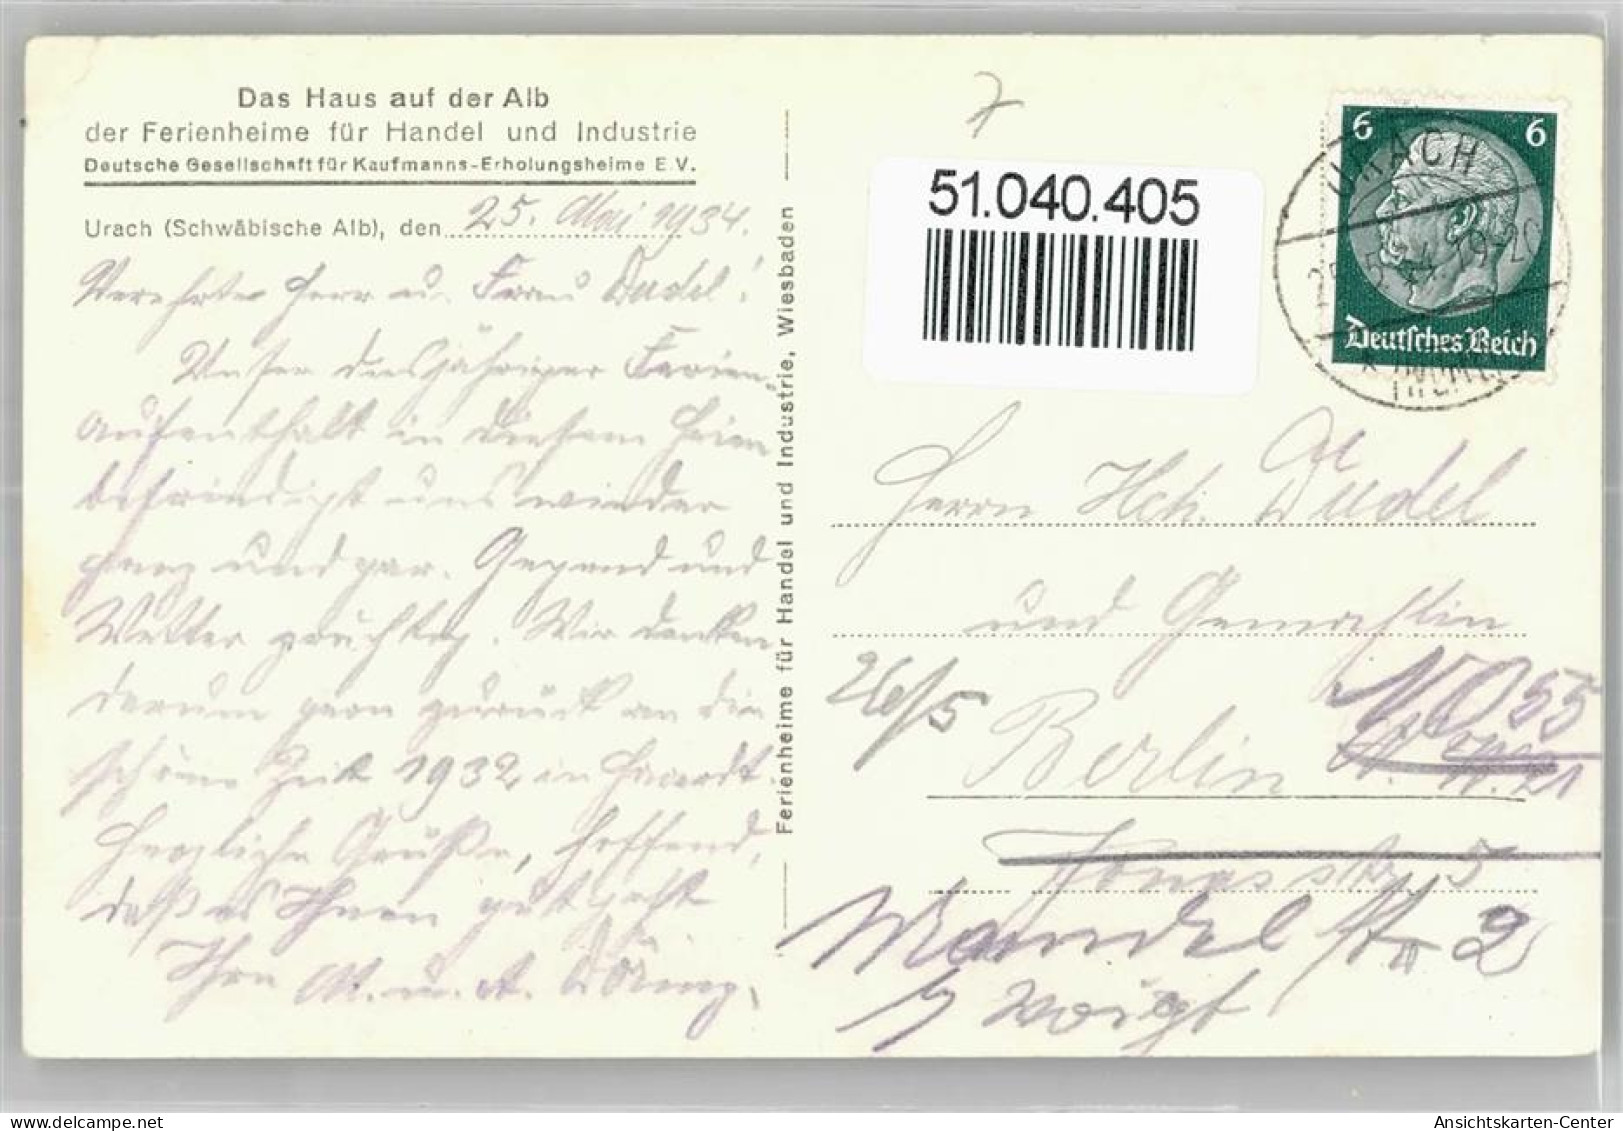 Das Haus auf der Alb
der Ferienheime für Handel und Industrie
Deutsche Gesellschaft für Kaufmanns-Erholungsheime E.V.
Urach (Schwäbische Alb), den 25. Mai 1934.
Verehrter Herr u. Frau Dudel!
Unser diesjähriger Ferien-
aufenthalt in diesem Heim
befriedigt uns wieder
ganz und gar. Gegend und
Wetter prächtig. Wir denken
darum gern zurück an die
schöne Zeit 1932 in
Herzliche Grüße, hoffend,
daß es Ihnen gut geht
Ihre M. u. A. Döring.
Ferienheime für Handel und Industrie, Wiesbaden
7
51.040.405
6 6
Deutsches Reich
URACH
25.5.34.19-20
Herrn Hch. Dudel
und Gemahlin
26/5
NO 55
Berlin
Jonasstr 5
Mandelstr 2
b/ Voigt
Ansichtskarten-Center